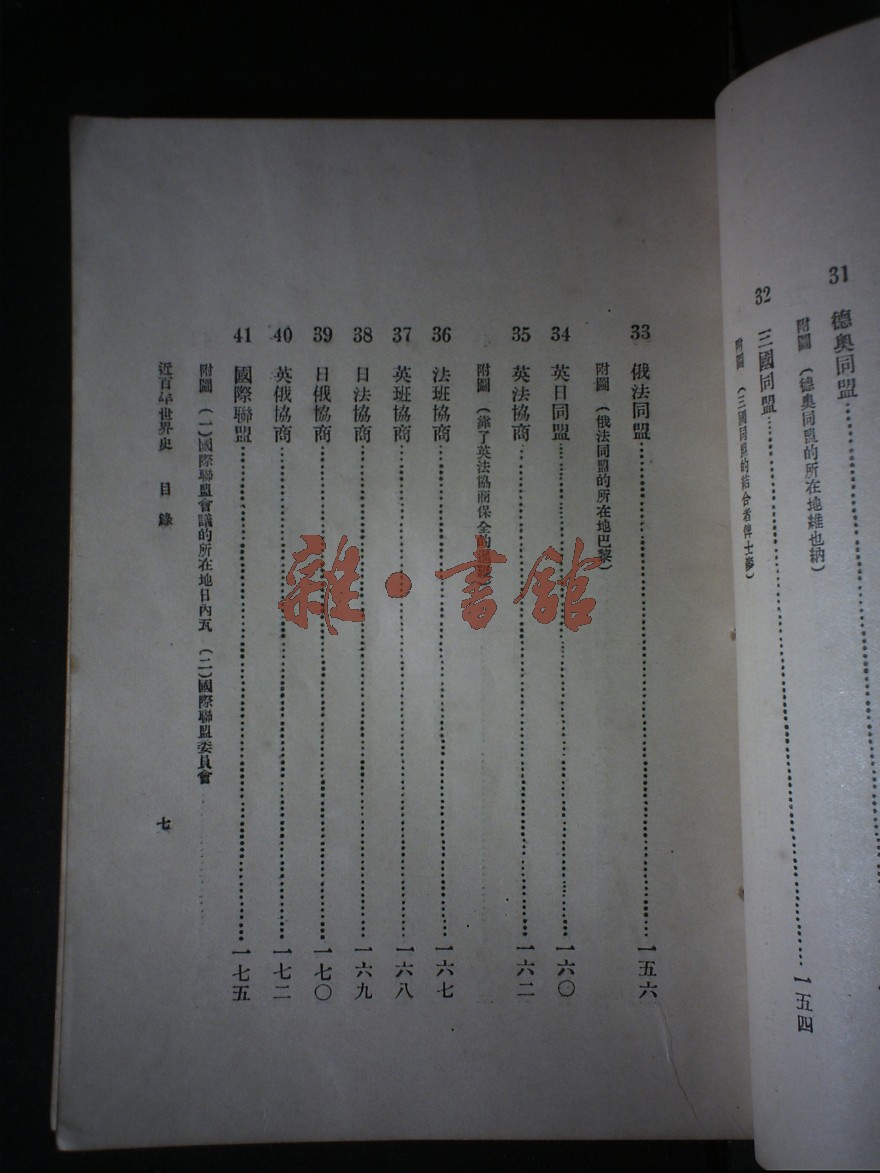 31 德奧同盟
附圖 (德奧同盟的所在地維也納)
32 三國同盟 一五四
附圖 (三國同盟的結合者俾士麥)
33 俄法同盟 一五六
附圖 (俄法同盟的所在地巴黎)
34 英日同盟 一六〇
35 英法協商 一六二
附圖 (靠了英法協商保全的
36 法班協商 一六七
37 英班協商 一六八
38 日法協商 一六九
39 日俄協商 一七〇
40 英俄協商 一七二
41 國際聯盟 一七五
附圖 (一)國際聯盟會議的所在地日內瓦 (二)國際聯盟委員會
近百年世界史 目錄 七
雜·書館